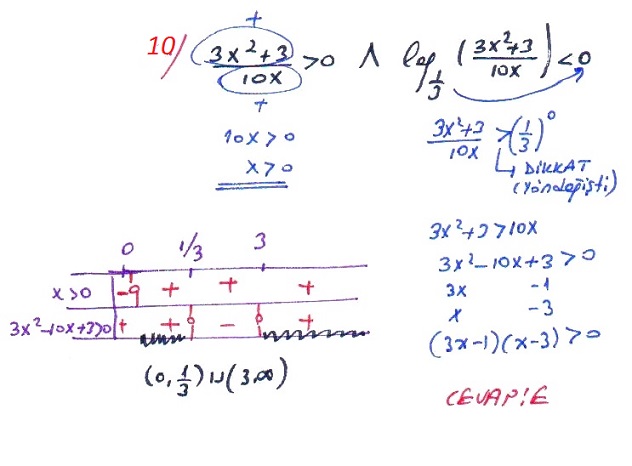 +
10/ (3x²+3)/(10x) > 0 ∧ log_{1/3} ((3x²+3)/(10x)) < 0
+
10x > 0
x > 0
(3x²+3)/(10x) > (1/3)⁰
↳ DİKKAT
(Yön değişti)
3x²+3 > 10x
3x²-10x+3 > 0
3x -1
x -3
(3x-1)(x-3) > 0
0 1/3 3
x>0 - + + +
3x²-10x+3>0 + + - +
(0, 1/3) ∪ (3,∞)
CEVAP:E